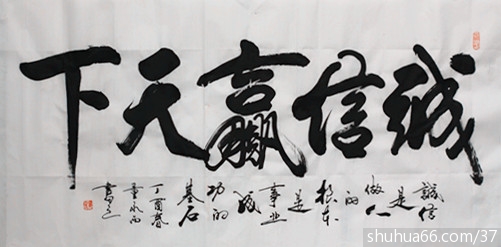 誠信赢天下
誠信
是
做人
的
根本
是
事业
成
功的
基石
丁酉春
shuhua66.com/37